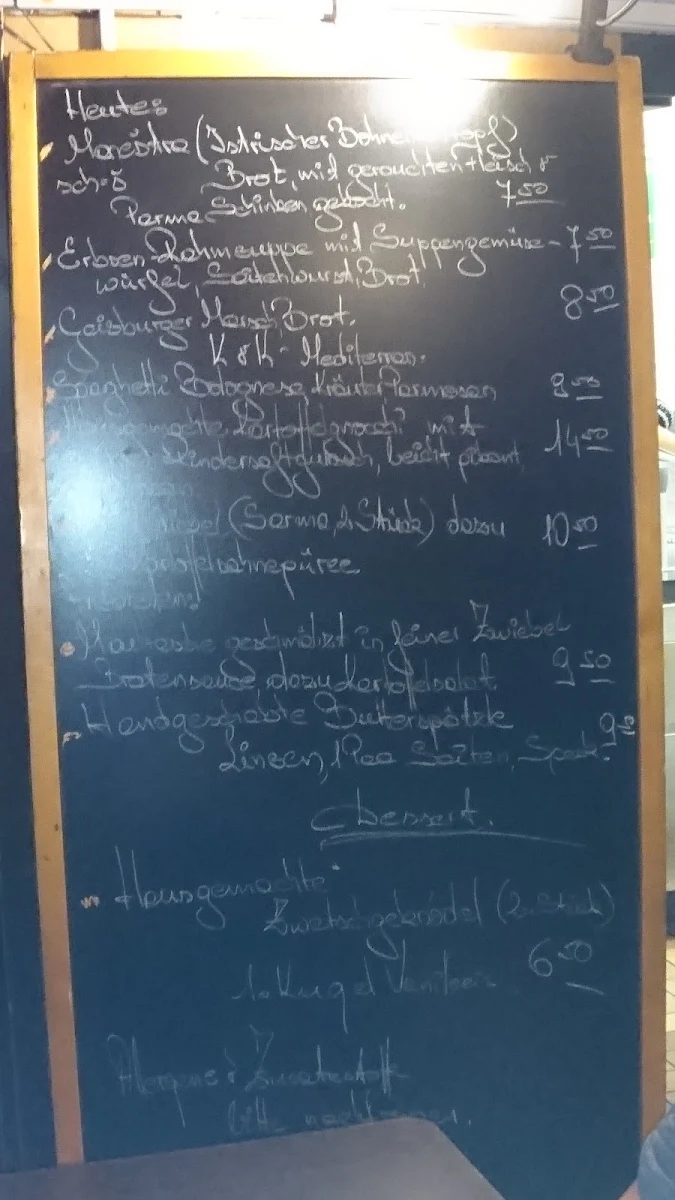 Heute:
Manéstra (Istrischer Bohneneintopf)
Brot, mit gerauchten Fleisch &
Parma Schinken gekocht. 7 50
Erbsen-Rahmsuppe mit Suppengemüse- 7 50
würfel, Saitenwurst, Brot.
Gaisburger Marsch, Brot. 8 50
K & K - Mediterran:
Spaghetti Bolognese, Kräuter, Parmesan 8 50
Hausgemachte Kartoffelgnocchi mit
Rindersaftgulasch, leicht pikant 14 50
(Sarma, 2 Stück) dazu 10 50
Kartoffelsahnepüree
Maultasche geschmälzt in feiner Zwiebel
Bratensauce, dazu Kartoffelsalat. 9 50
Handgeschabte Butterspätzle
Linsen, 1 Paar Saiten, Speck. 9 50
Dessert.
Hausgemachte
Zwetschgeknödel (2 Stück)
1. Kugel Vanilleeis 6 50
Allergene & Zusatzstoffe
bitte nachfragen.